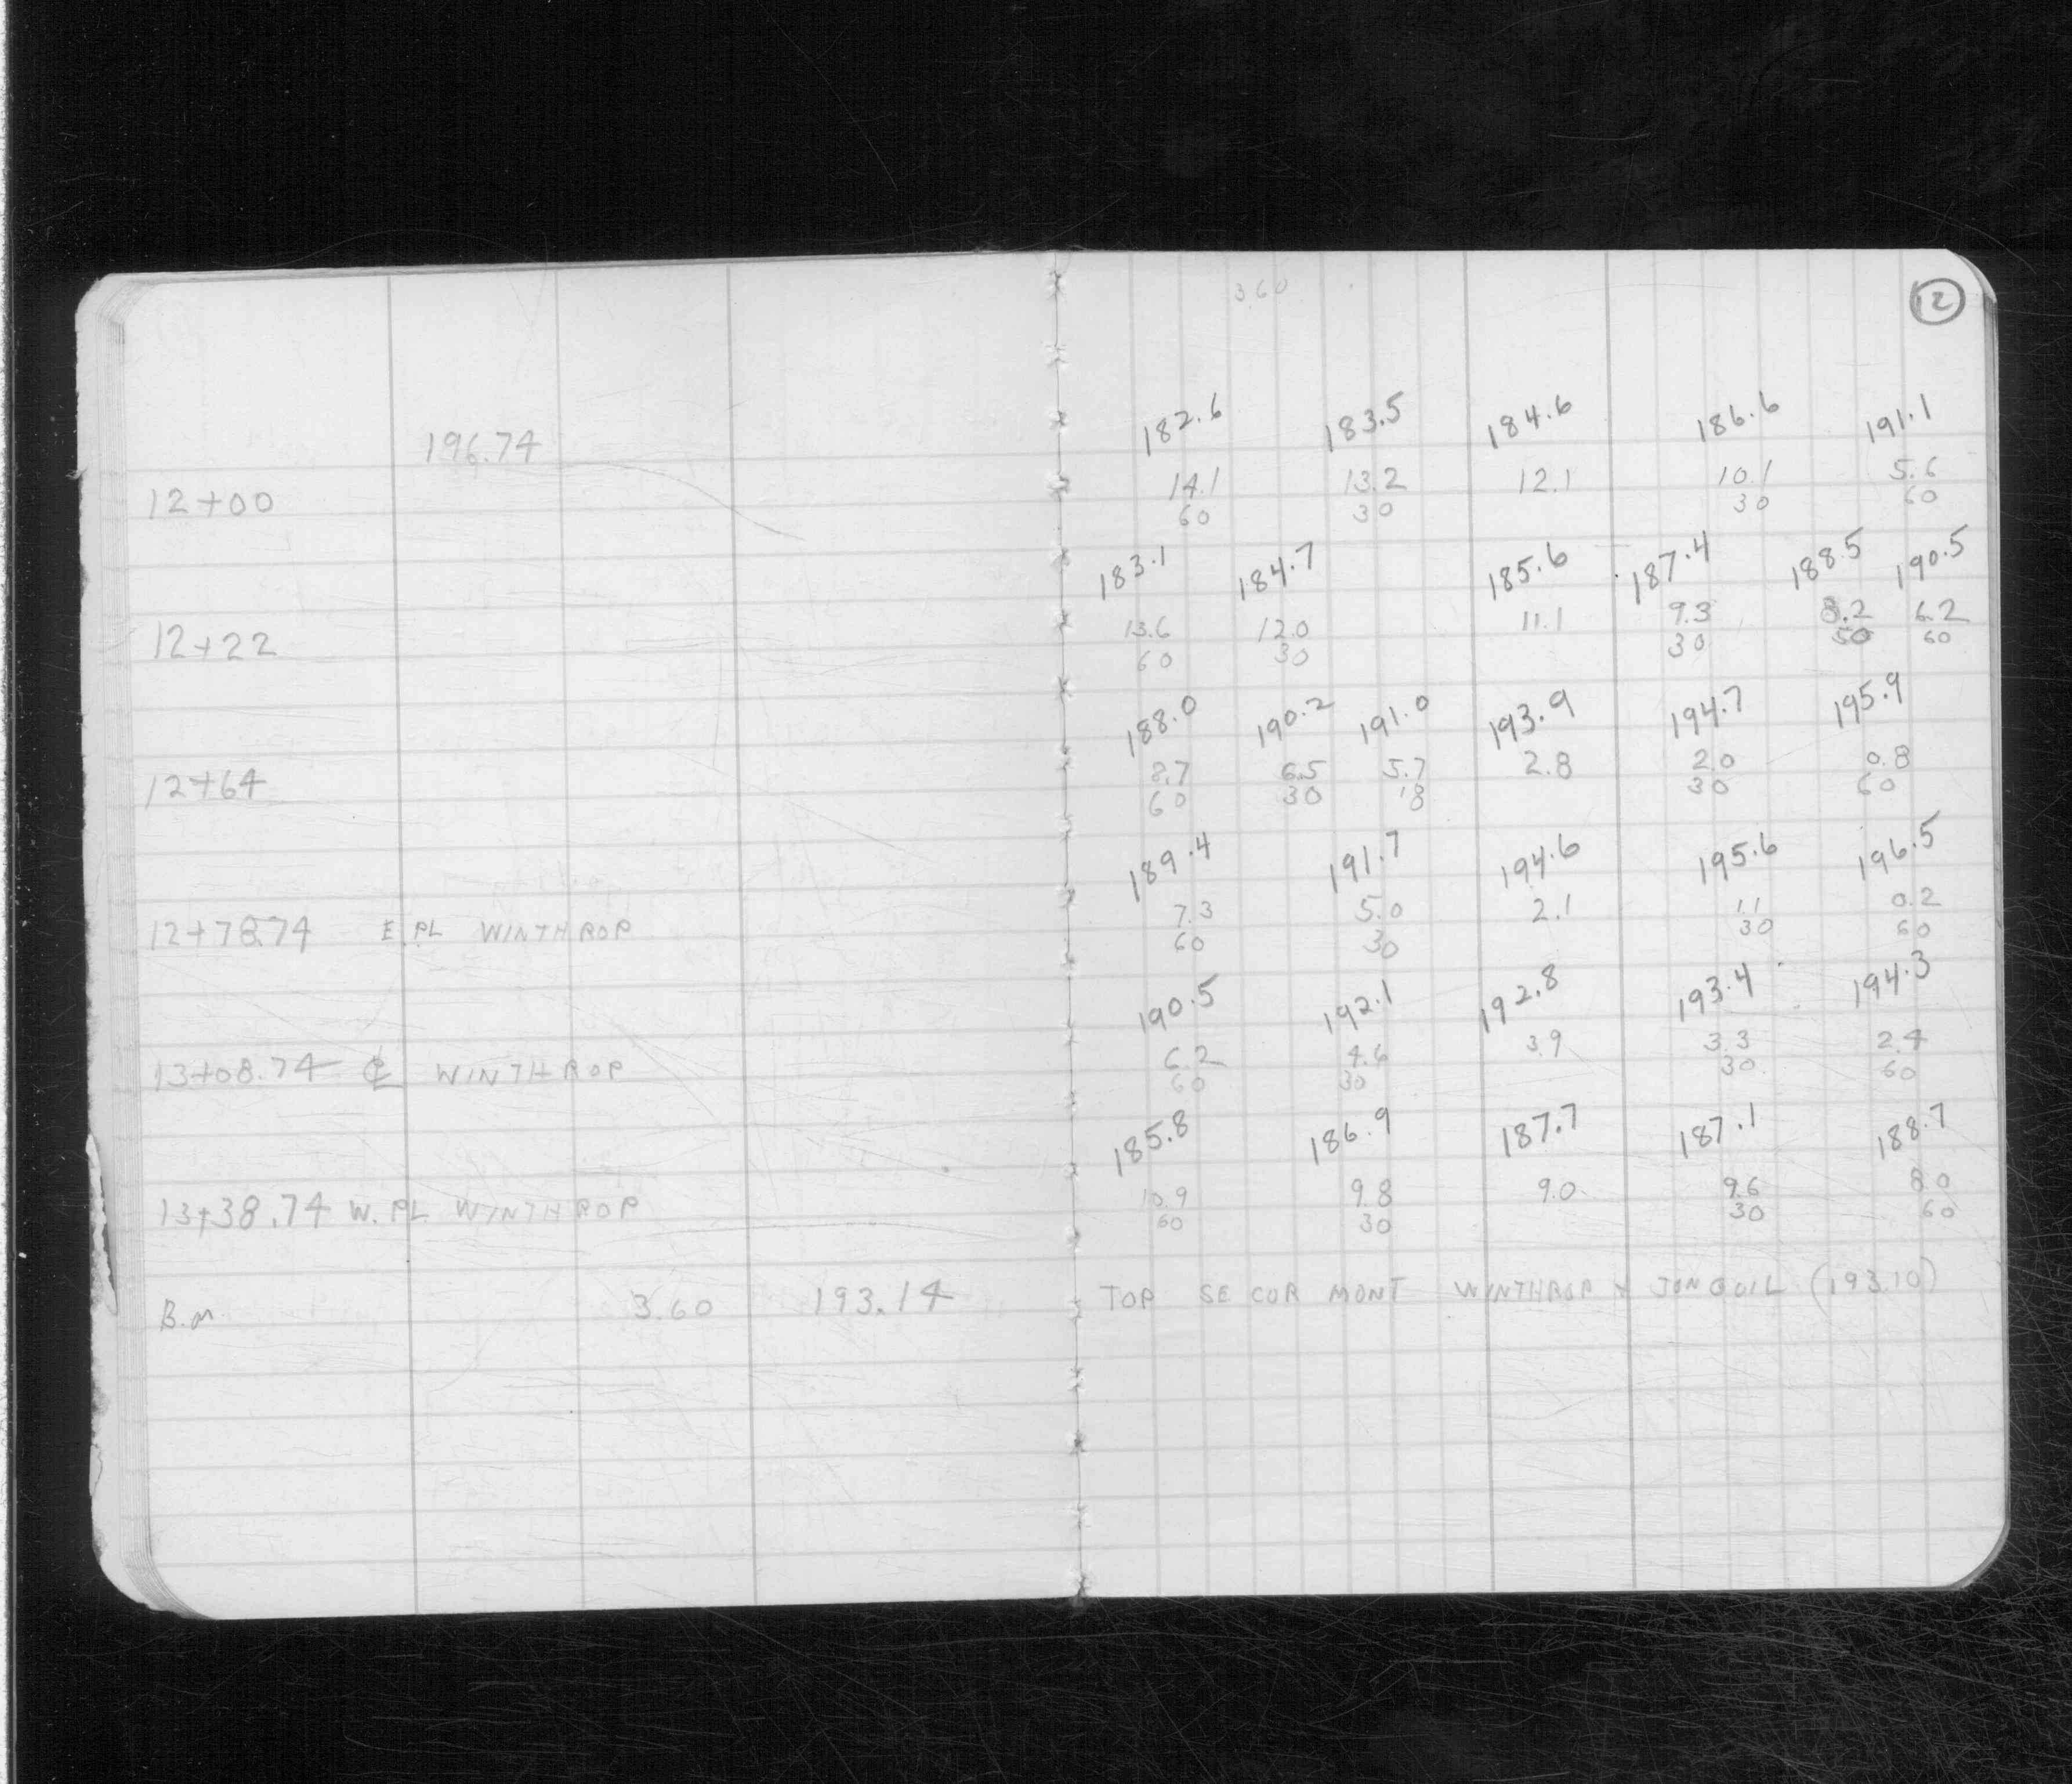 360
12
196.74
182.6 183.5 184.6 186.6 191.1
12+00 14.1 13.2 12.1 10.1 5.6
60 30 30 60
183.1 184.7 185.6 187.4 188.5 190.5
12+22 13.6 12.0 11.1 9.3 8.2 6.2
60 30 30 50 60
188.0 190.2 191.0 193.9 194.7 195.9
12+64 8.7 6.5 5.7 2.8 2.0 0.8
60 30 18 30 60
189.4 191.7 194.6 195.6 196.5
12+78.74 E.PL WINTHROP 7.3 5.0 2.1 1.1 0.2
60 30 30 60
190.5 192.1 192.8 193.4 194.3
13+08.74 ℄ WINTHROP 6.2 4.6 3.9 3.3 2.4
60 30 30 60
185.8 186.9 187.7 187.1 188.7
13+38.74 W.PL WINTHROP 10.9 9.8 9.0 9.6 8.0
60 30 30 60
B.M 3.60 193.14 TOP SE COR MONT WINTHROP & JONQUIL (193.10)